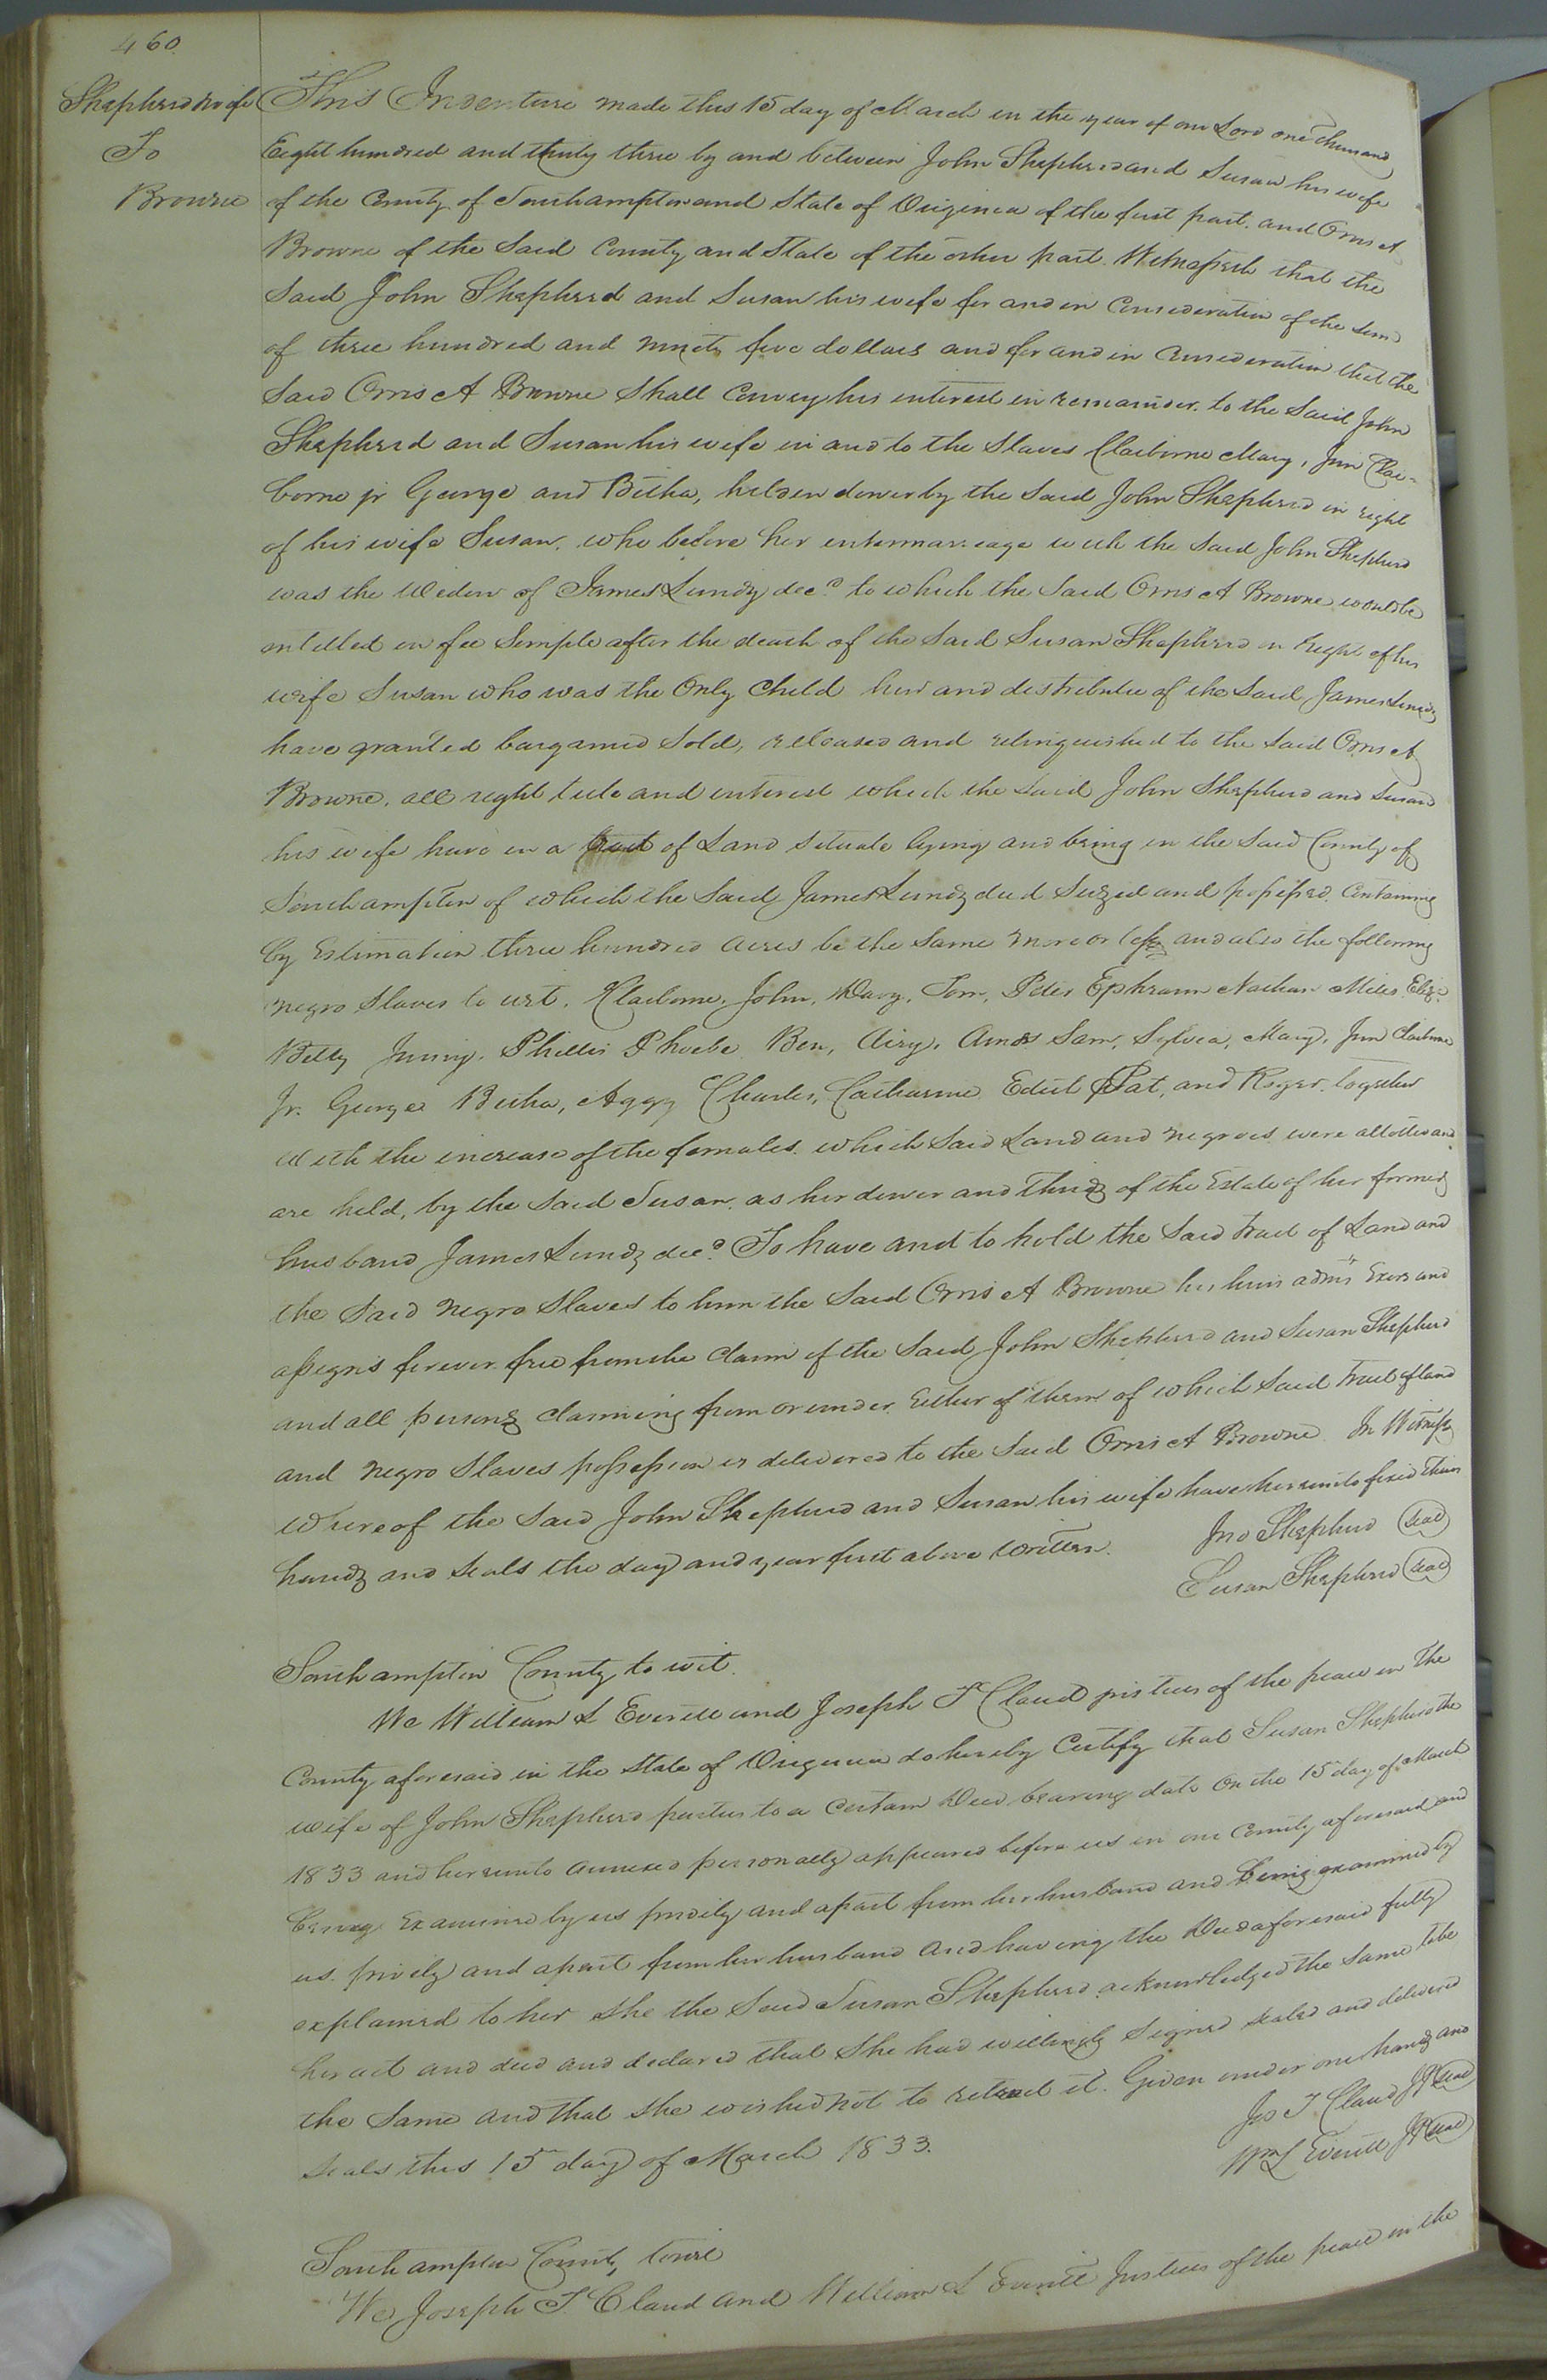 460.
Shepherd & wife
To
Browne
This Indenture made this 15 day of March in the year of our Lord one thousand
Eight hundred and thirty three by and between John Shepherd and Susan his wife
of the County of Southampton and State of Virginia of the first part. and Orris A
Browne of the Said County and State of the other part. Witnesseth that the
Said John Shepherd and Susan his wife for and in Consideration of the Sum
of three hundred and ninety five dollars and for and in Consideration that the
Said Orris A Browne Shall Convey his interest in remainder. to the Said John
Shepherd and Susan his wife in and to the Slaves Claiborne Mary, Jim Clai-
borne jr George and Bitha, held in dower by the Said John Shepherd in right
of his wife Susan. who before her intermarriage with the Said John Shepherd
was the Widow of James Lundy decd. to which the Said Orris A Browne would be
intitled in fee Simple after the death of the Said Susan Shepherd in Right of his
wife Susan who was the Only Child heir and distributee of the Said James Lundy
have granted bargained Sold, released and relinquished to the Said Orris A
Browne. all right title and interest which the Said John Shepherd and Susan
his wife have in a tract of Land Situate lying and being in the Said County of
Southampton of which the Said James Lundy died Seized and possessed. Containing
by Estimation three hundred acres be the Same more or less and also the following
negro Slaves to wit. Claiborne. John, Davy. Tom, Peter Ephraim Nathan Miles Eliza
Betty Jinny. Phillis Phoebe Ben, Airy. Amos Sam, Sylvia, Mary, Jim Claiborne
Jr. George Bitha, Aggy Charles, Catharine Edith Pat, and Roger. together
With the increase of the females. which Said Land and negroes were allotted and
are held, by the Said Susan. as her dower and thirds of the Estate of her former
husband James Lundy decd. To have and to hold the Said tract of Land and
the Said negro Slaves to him the Said Orris A Browne his heirs admrs Exors and
assigns forever free from the Claim of the Said John Shepherd and Susan Shepherd
and all persons Claiming from or under Either of them of which Said tract of land
and negro Slaves possession is delivered to the Said Orris A Browne. In Witness
Whereof the Said John Shepherd and Susan his wife have hereunto fixed their
hands and Seals the day and year first above Written.
Jno Shepherd (seal)
Susan Shepherd (seal)
Southampton County to wit.
We William L Everitt and Joseph T Claud justices of the peace in The
County aforesaid in the State of Virginia do hereby Certify that Susan Shepherd the
wife of John Shepherd parties to a Certain Deed bearing date On the 15 day of March
1833 and hereunto annexed personally appeared before us in our County aforesaid and
being Examined by us privily and apart from her husband and being examined by
us. privily and apart from her husband and having the Deed aforesaid fully
explained to her She the Said Susan Shepherd acknowledged the Same to be
her act and deed and declared that She had willingly Signed Sealed and delivered
the Same and that She wished not to retract it. Given under our hands and
Seals this 15 day of March 1833.
Jos T Claud JP (seal)
Wm L Everitt JP (seal)
Southampton County, towit
We Joseph T Claud and William L Everitt Justices of the peace in the